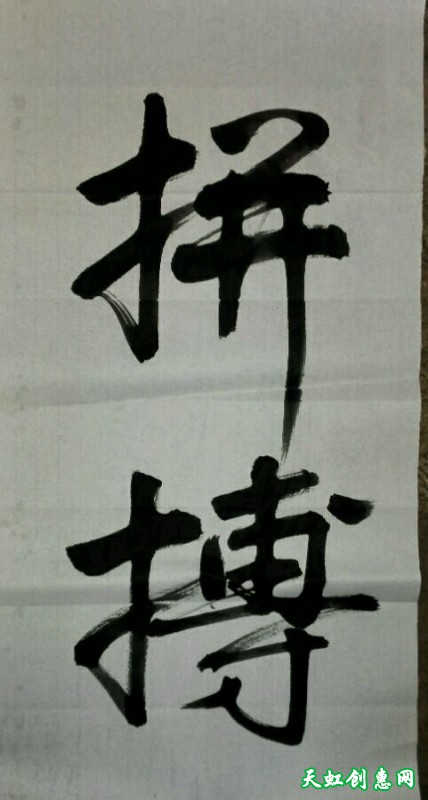 拼搏
天虹创惠网